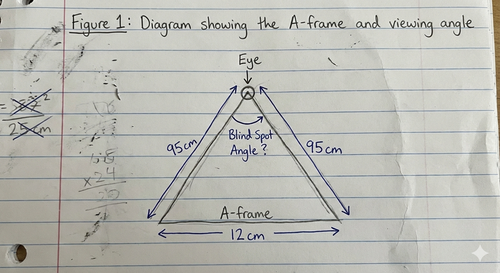 Figure 1: Diagram showing the A-frame and viewing angle
Eye
Blind Spot
Angle?
95cm
95cm
A-frame
12cm